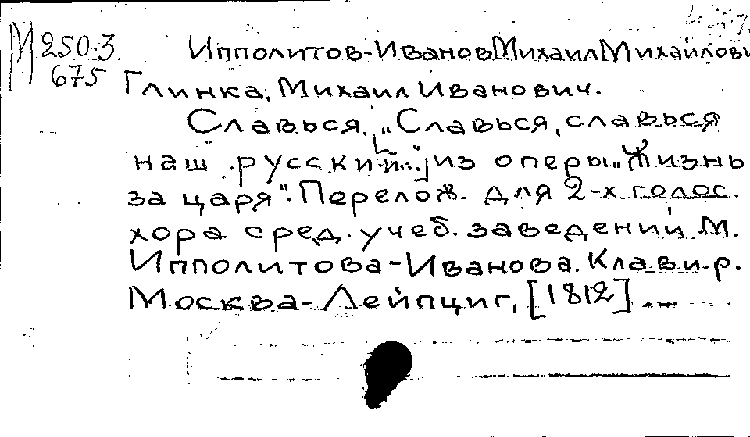 М 250-3
675
Ипполитов-Иванов Михаил Михайлови
Глинка, Михаил Иванович.
Славься. ["Славься, славься
наш русский..."] из оперы "Жизнь
за царя". Перелож. для 2-х голос.
хора сред. учеб. заведений М.
Ипполитова-Иванова. Клавир.
Москва-Лейпциг, [1812] ...